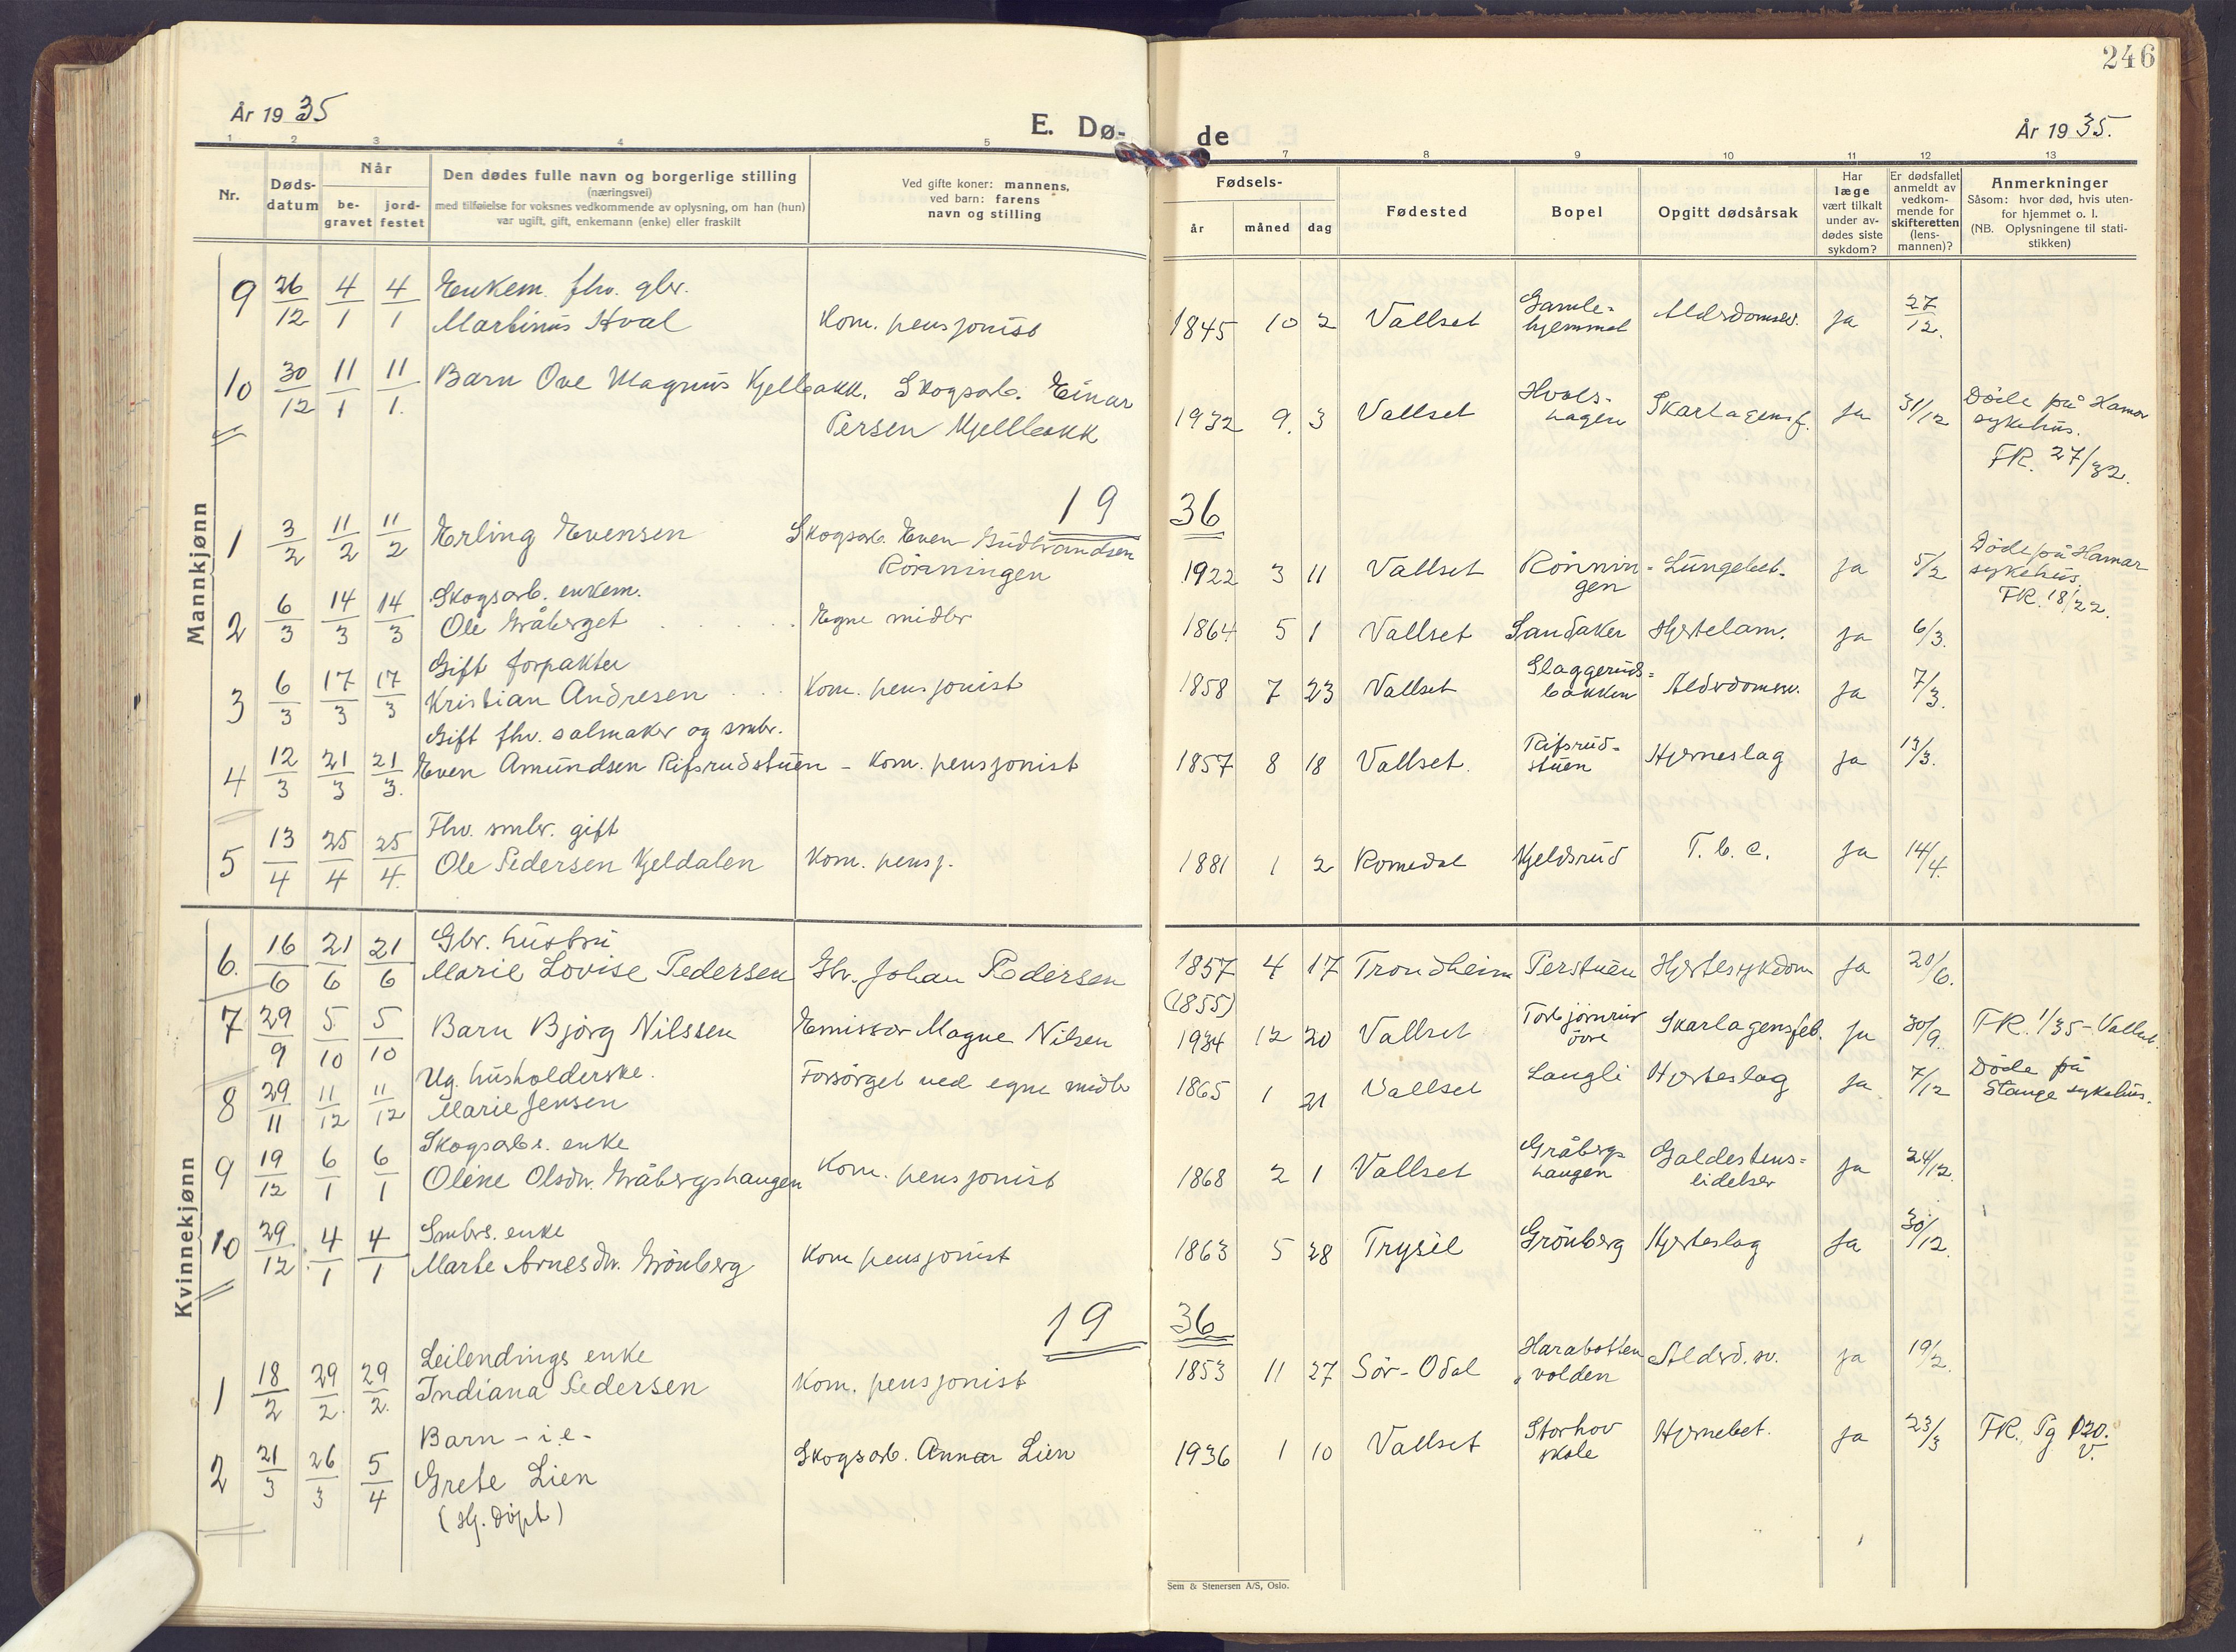 246
År 1935
E. Dø- de
År 1935.
1 2 3 4 5 7 8 9 10 11 12 13
Nr.
Døds-
datum
Når
be-
gravet
jord-
festet
Den dødes fulle navn og borgerlige stilling
(næringsvei)
med tilføielse for voksnes vedkommende av oplysning, om han (hun)
var ugift, gift, enkemann (enke) eller fraskilt
Ved gifte koner: mannens,
ved barn: farens
navn og stilling
Fødsels-
år måned dag
Fødested
Bopel
Opgitt dødsårsak
Har
læge
vært tilkalt
under av-
dødes siste
sykdom?
Er dødsfallet
anmeldt av
vedkom-
mende for
skifteretten
(lens-
mannen)?
Anmerkninger
Såsom: hvor død, hvis uten-
for hjemmet o. l.
(NB. Oplysningene til stati-
stikken)
Mannkjønn
9 26/12 4/1 4/1 Enkem. fhv. gbr.
Martinus Hval Kom. pensjonist 1845 10 2 Vallset Gamle-
hjemmet Alderdomsv. ja 27/12.
10 30/12 11/1 11/1. Barn Ove Magnus Kjelbakk. Skogsarb. Einar
Persen Kjellbakk 1932 9. 3 Vallset Hvals-
hagen Skarlagensf. ja 31/12 Døde på Hamar
sykehus.
FR. 27/32.
19 36
1 3/2 11/2 11/2 Erling Evensen Skogsarb. Even Gudbrandsen
Rönningen 1922 3 11 Vallset Rönnin-
gen Lungebet. ja 5/2 Døde på Hamar
sykehus.
FR. 18/22.
2 6/3 14/3 14/3 Skogsarb. enkem.
Ole Gråberget Egne midler 1864 5 1 Vallset Sandaker Hjertelam. ja 6/3.
3 6/3 17/3 17/3 Gift forpakter
Kristian Andresen Kom. pensjonist 1858 7 23 Vallset Slaggeruds-
bakken Alderdomsv. ja 7/3.
4 12/3 21/3 21/3. Gift fhv. salmaker og smbr.
Even Amundsen Rifsrudstuen - Kom. pensjonist 1857 8 18 Vallset. Rifsrud-
stuen Hjerneslag ja 13/3.
5 13/4 25/4 25/4. Fhv. smbr. gift
Ole Pedersen Kjeldalen Kom. pensj. 1881 1 2 Romedal Kjeldsrud T. b. c. ja 14/4.
Kvinnekjønn
6. 16/6 21/6 21/6 Gbr. hustru
Marie Lovise Pedersen Gbr. Johan Pedersen 1857 4 17 Trondheim Perstuen Hjertesykdom ja 20/6.
(1855)
7 29/9 5/10 5/10 Barn Bjørg Nilssen Emissær Magne Nilsen 1934 12 20 Vallset Torbjörnrud
övre Skarlagensfeb. ja 30/9. FR. 1/35 - Vallset.
8 29/11 11/12 11/12 Ug. husholderske.
Marie Jensen Forsörget ved egne midler 1865 1 21 Vallset Langli Hjerteslag ja 7/12 Döde på
Stange sykehus.
9 19/12 6/1 6/1 Skogsarb. enke
Oline Olsdtr. Gråbergshaugen Kom. pensjonist 1868 2 1 Vallset Gråbergs
haugen Galdestens-
lidelser ja 24/12.
10 29/12. 4/1 4/1 Smbrs. enke
Marte Arnesdtr. Grönberg Kom pensjonist 1863 5 28 Trysil Grönberg Hjerteslag ja 30/12.
19 36
1 18/2 29/2. 29/2. Leilendings enke
Indiana Pedersen Kom. pensjonist 1853 11 27 Sör-Odal Harabotten
volden Alderd. sv. ja 19/2.
2 21/3 26/3 5/4 Barn - i.e -
Grete Lien
(Hj. döpt) Skogsarb. Annar Lien 1936 1 10 Vallset Storhov
skole Hjernebet. ja 23/3 FR. Pg 120.
V.
Sem & Stenersen A/S, Oslo.